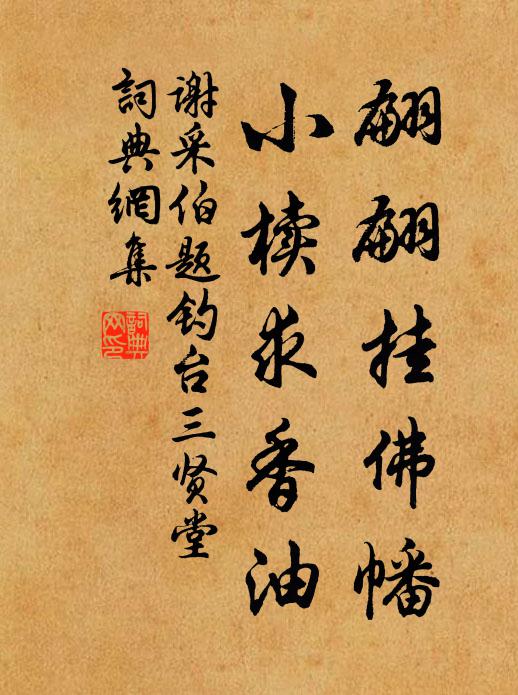 翩翩挂佛幡
小椟求香油
谢采伯题钓台三贤堂
詞典網集
詞典网印